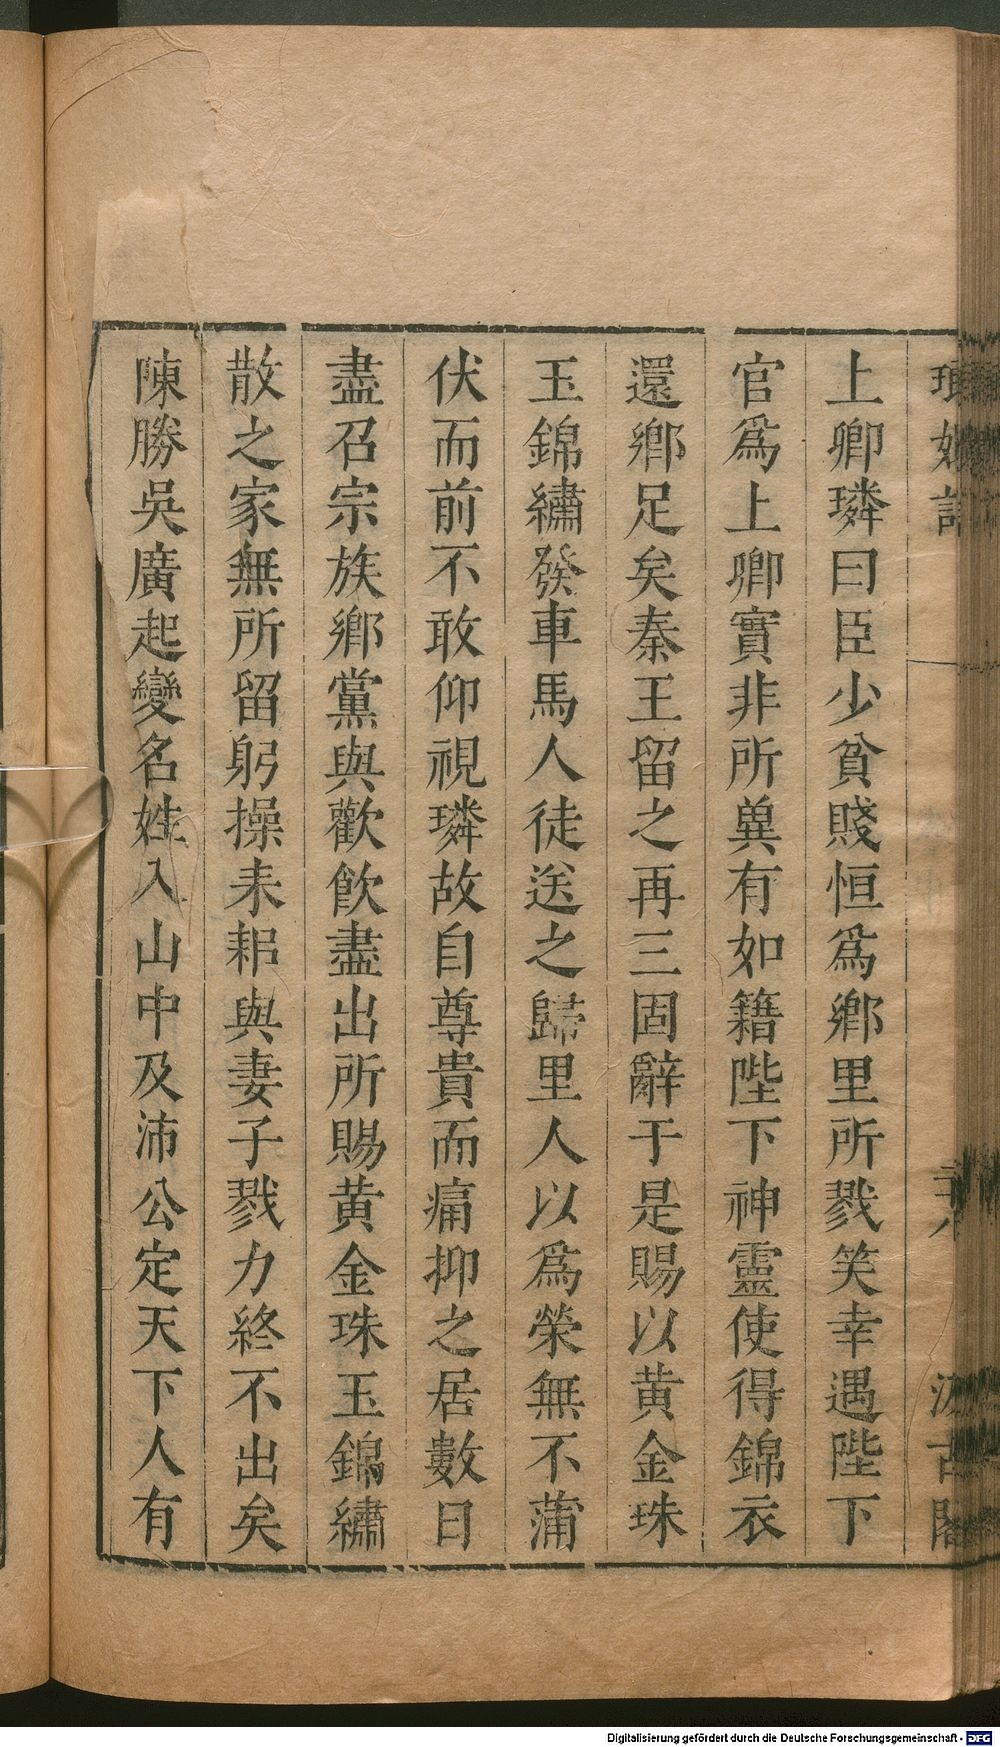 上卿璘曰臣少貧賤恒爲鄉里所戮笑幸遇陛下
官爲上卿實非所兾有如籍陛下神靈使得錦衣
還鄉足矣秦王留之再三固辭于是賜以黄金珠
玉錦繡發車馬人徒送之歸里人以爲榮無不蒲
伏而前不敢仰視璘故自尊貴而痛抑之居數日
盡召宗族鄉黨與歡飲盡出所賜黄金珠玉錦繡
散之家無所留躬操耒耜與妻子戮力終不出矣
陳勝吳廣起變名姓入山中及沛公定天下人有
Digitalisierung gefördert durch die Deutsche Forschungsgemeinschaft - DFG